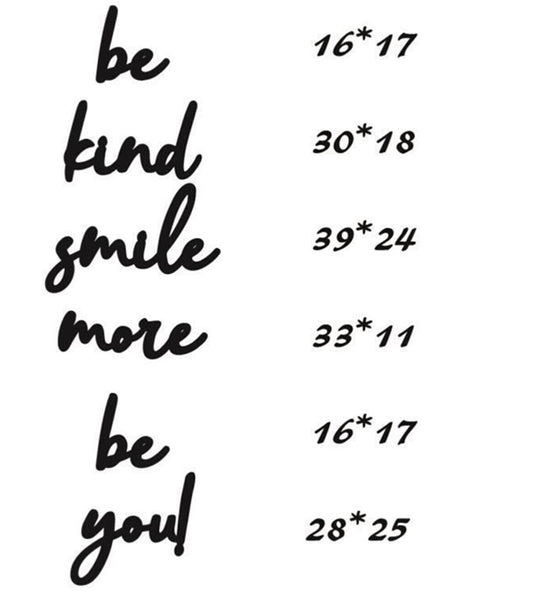 be 16*17
kind 30*18
smile 39*24
more 33*11
be 16*17
you! 28*25